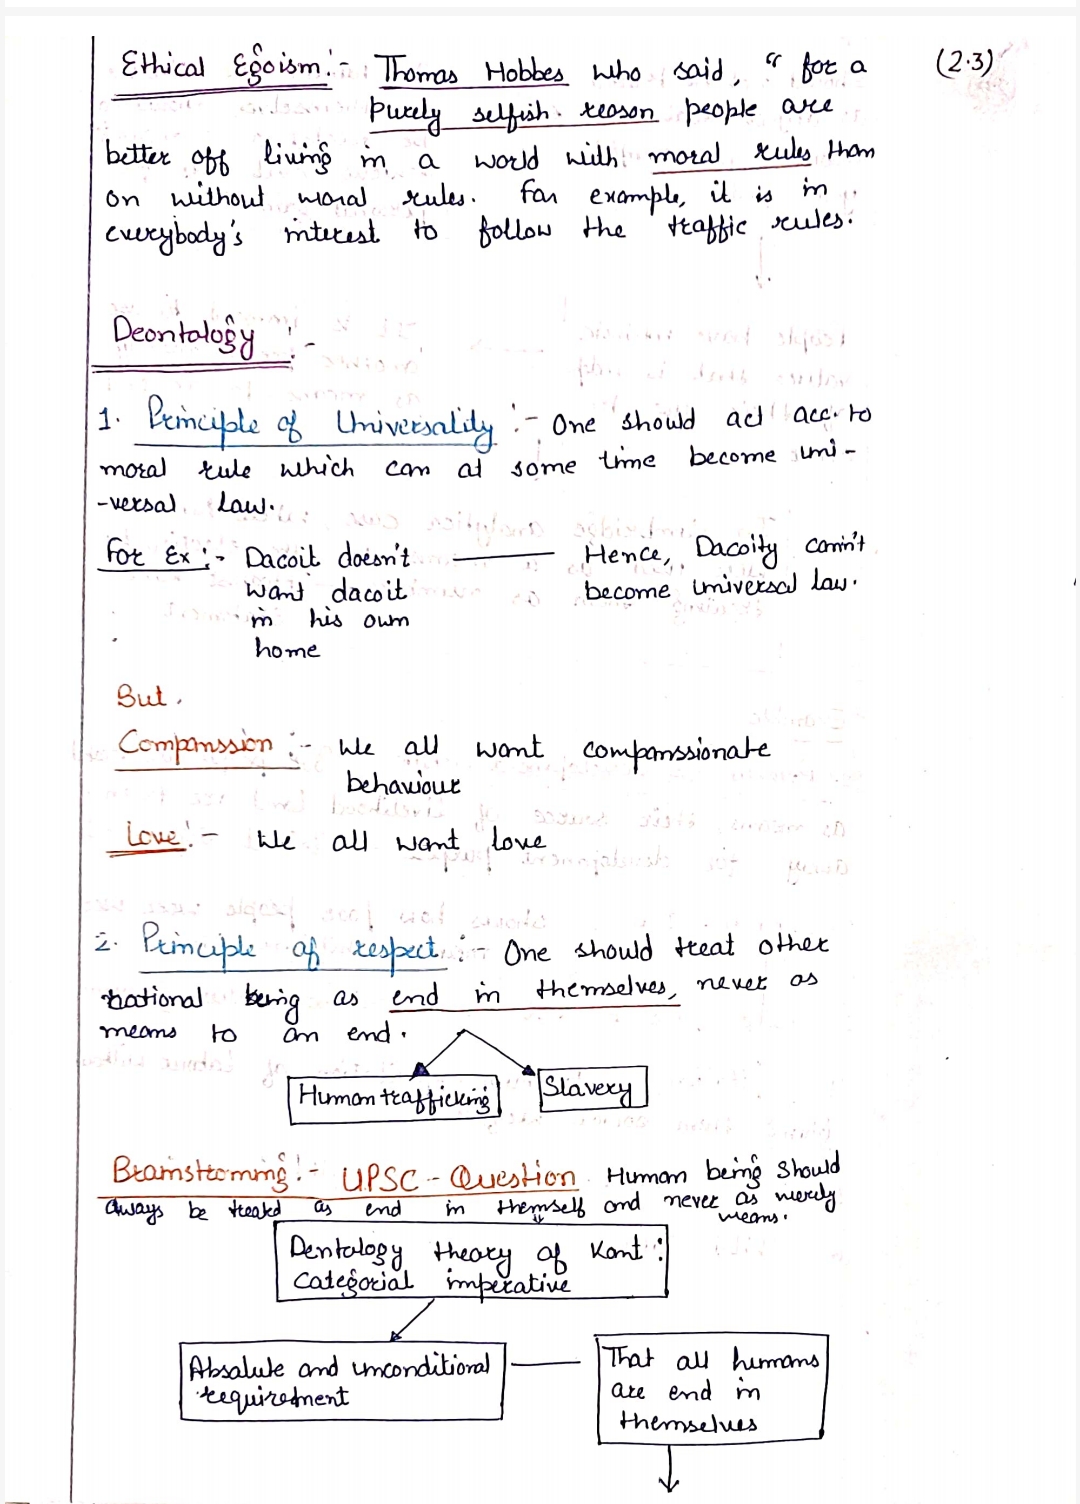 Ethical Egoism :- Thomas Hobbes who said, " for a (2.3)
purely selfish reason people are
better off living in a world with moral rules than
on without moral rules. For example, it is in
everybody's interest to follow the traffic rules.
Deontology :-
1. Principle of Universality :- One should act acc. to
moral rule which can at some time become uni-
-versal law.
For Ex :- Dacoit doesn't — Hence, Dacoity cann't
want dacoit become universal law.
in his own
home
But,
Companssion :- We all want companssionate
behaviour
Love :- We all want love
2. Principle of respect :- One should treat other
rational being as end in themselves, never as
means to an end.
Human trafficking Slavery
Brainstorming :- UPSC - Question Human being should
always be treated as end in themself and never as merely
means.
Dentology theory of Kant :
Categorial imperative
Absolute and unconditional — That all humans
requirement are end in
themselves